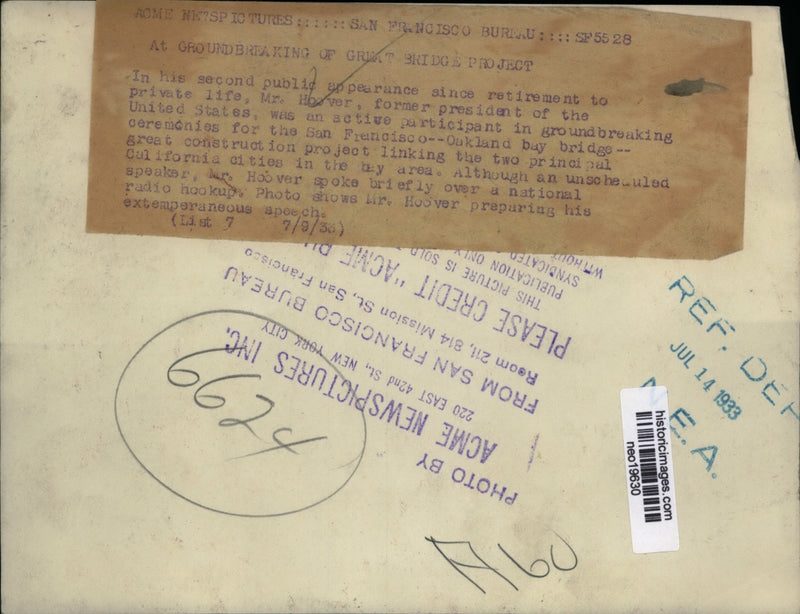 ACME NEWSPICTURES::::::SAN FRANCISCO BUREAU::::SF5528
At GROUNDBREAKING OF GREAT BRIDGE PROJECT
In his second public appearance since retirement to
private life, Mr. Hoover, former president of the
United States, was an active participant in groundbreaking
ceremonies for the San Francisco--Oakland bay bridge--
great construction project linking the two principal
California cities in the bay area. Although an unscheduled
speaker, Mr. Hoover spoke briefly over a national
radio hookup. Photo shows Mr. Hoover preparing his
extemperaneous speech.
(List 7 7/9/33)
PHOTO BY
ACME NEWSPICTURES INC.
220 EAST 42nd St., NEW YORK CITY
FROM SAN FRANCISCO BUREAU
Room 211, 814 Mission St, San Francisco
PLEASE CREDIT "ACME
THIS PICTURE IS SOLD
PUBLICATION ONLY
SYNDICATED
WITHOUT
6624
A60
REF. DEP
JUL 14 1933
N.E.A.
historicimages.com
neo19630